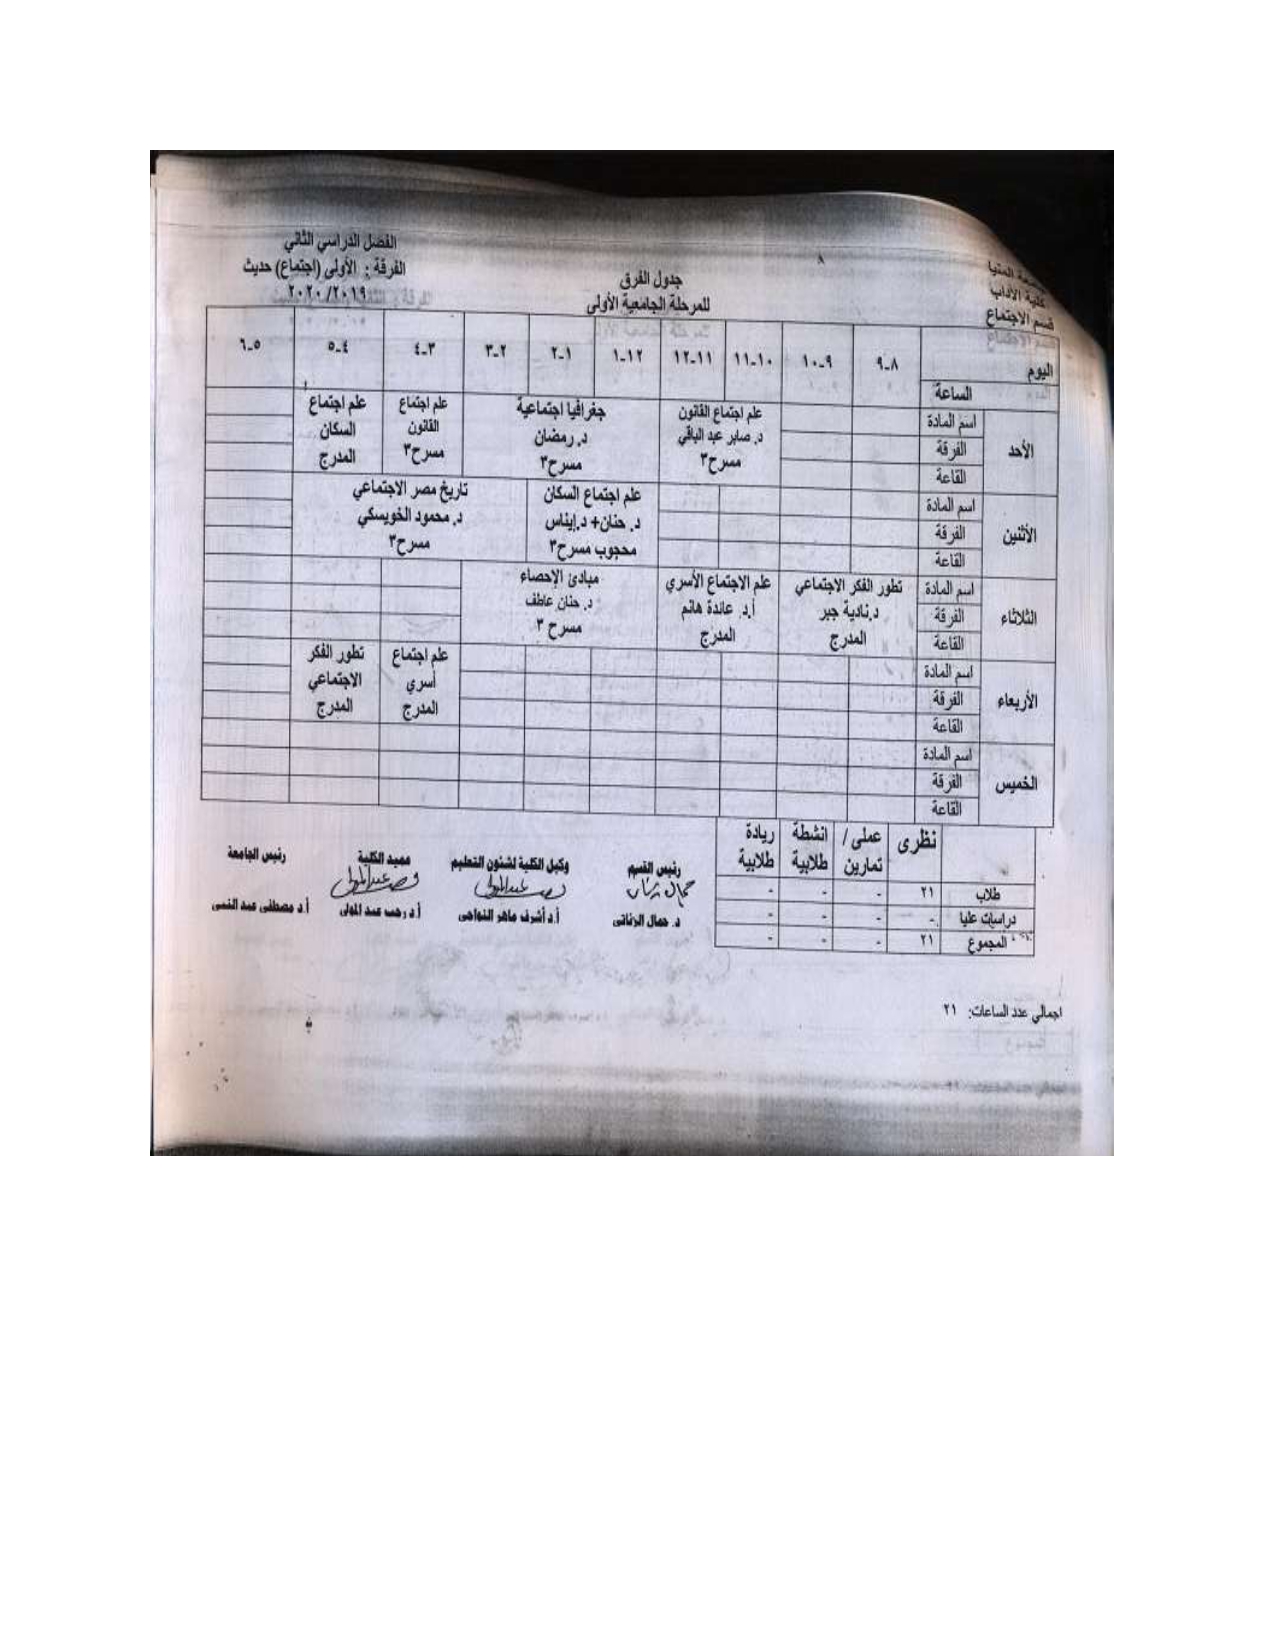 المنيا
كلية الآداب
قسم الاجتماع
جدول الفرق
للمرحلة الجامعية الأولى
الفصل الدراسي الثاني
الفرقة : الأولى (اجتماع) حديث
٢٠٢٠/٢٠١٩
اليوم
الساعة
٨-٩
٩-١٠
١٠-١١
١١-١٢
١٢-١
١-٢
٢-٣
٣-٤
٤-٥
٥-٦
الأحد
اسم المادة
الفرقة
القاعة
علم اجتماع القانون
د. صابر عبد الباقي
مسرح٣
جغرافيا اجتماعية
د. رمضان
مسرح٣
علم اجتماع
القانون
مسرح٣
علم اجتماع
السكان
المدرج
الأثنين
اسم المادة
الفرقة
القاعة
علم اجتماع السكان
د. حنان+ د.إيناس
محجوب مسرح٣
تاريخ مصر الاجتماعي
د. محمود الخويسكي
مسرح٣
الثلاثاء
اسم المادة
الفرقة
القاعة
تطور الفكر الاجتماعي
د.نادية جبر
المدرج
علم الاجتماع الأسري
أ.د. عائدة هانم
المدرج
مبادئ الإحصاء
د. حنان عاطف
مسرح ٣
الأربعاء
اسم المادة
الفرقة
القاعة
علم اجتماع
أسري
المدرج
تطور الفكر
الاجتماعي
المدرج
الخميس
اسم المادة
الفرقة
القاعة
نظرى
عملى /
تمارين
انشطة
طلابية
ريادة
طلابية
طلاب ٢١ - - -
دراسات عليا - - - -
المجموع ٢١ - - -
رئيس القسم
د. جمال الزناتى
وكيل الكلية لشئون التعليم
أ.د أشرف ماهر النواجى
عميد الكلية
أ.د رجب عبد المولى
رئيس الجامعة
أ.د مصطفى عبد النبى
اجمالي عدد الساعات: ٢١